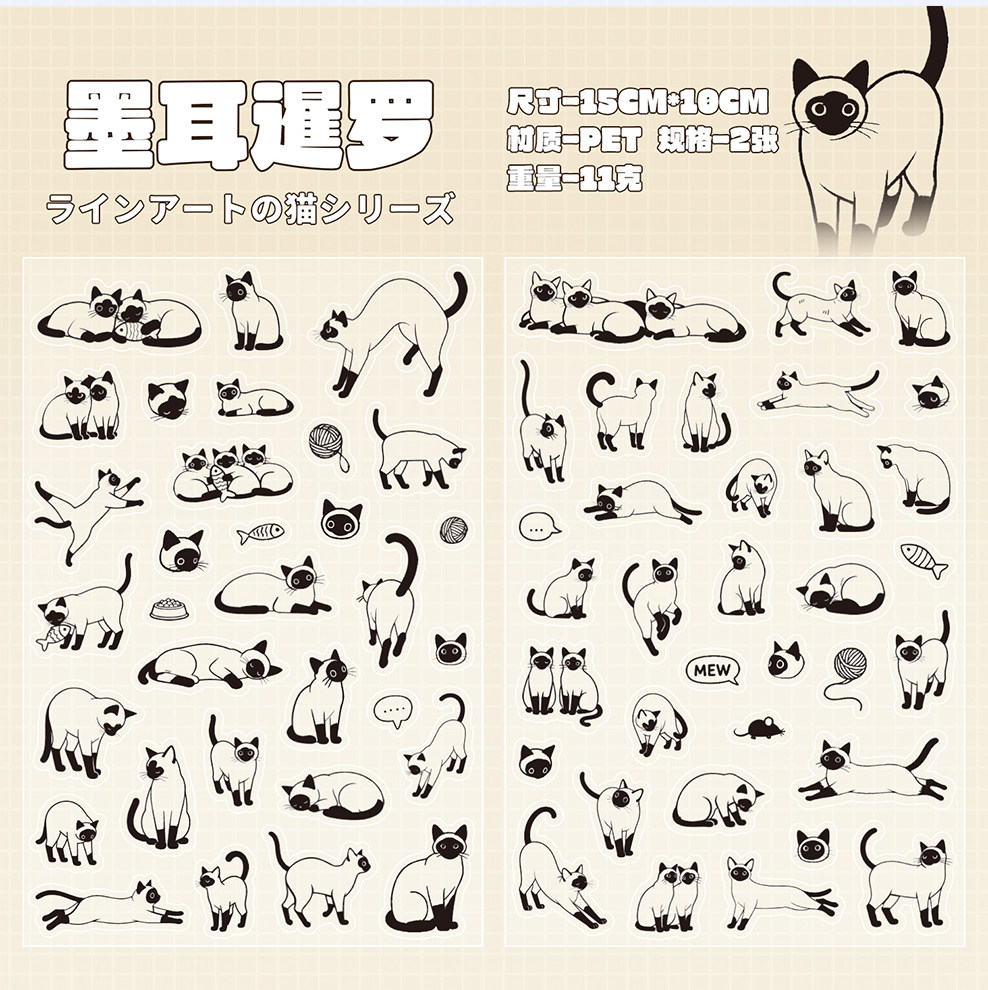 墨耳暹罗
ラインアートの猫シリーズ
尺寸-15CM*10CM
材质-PET 规格-2张
重量-11克
...
...
MEW